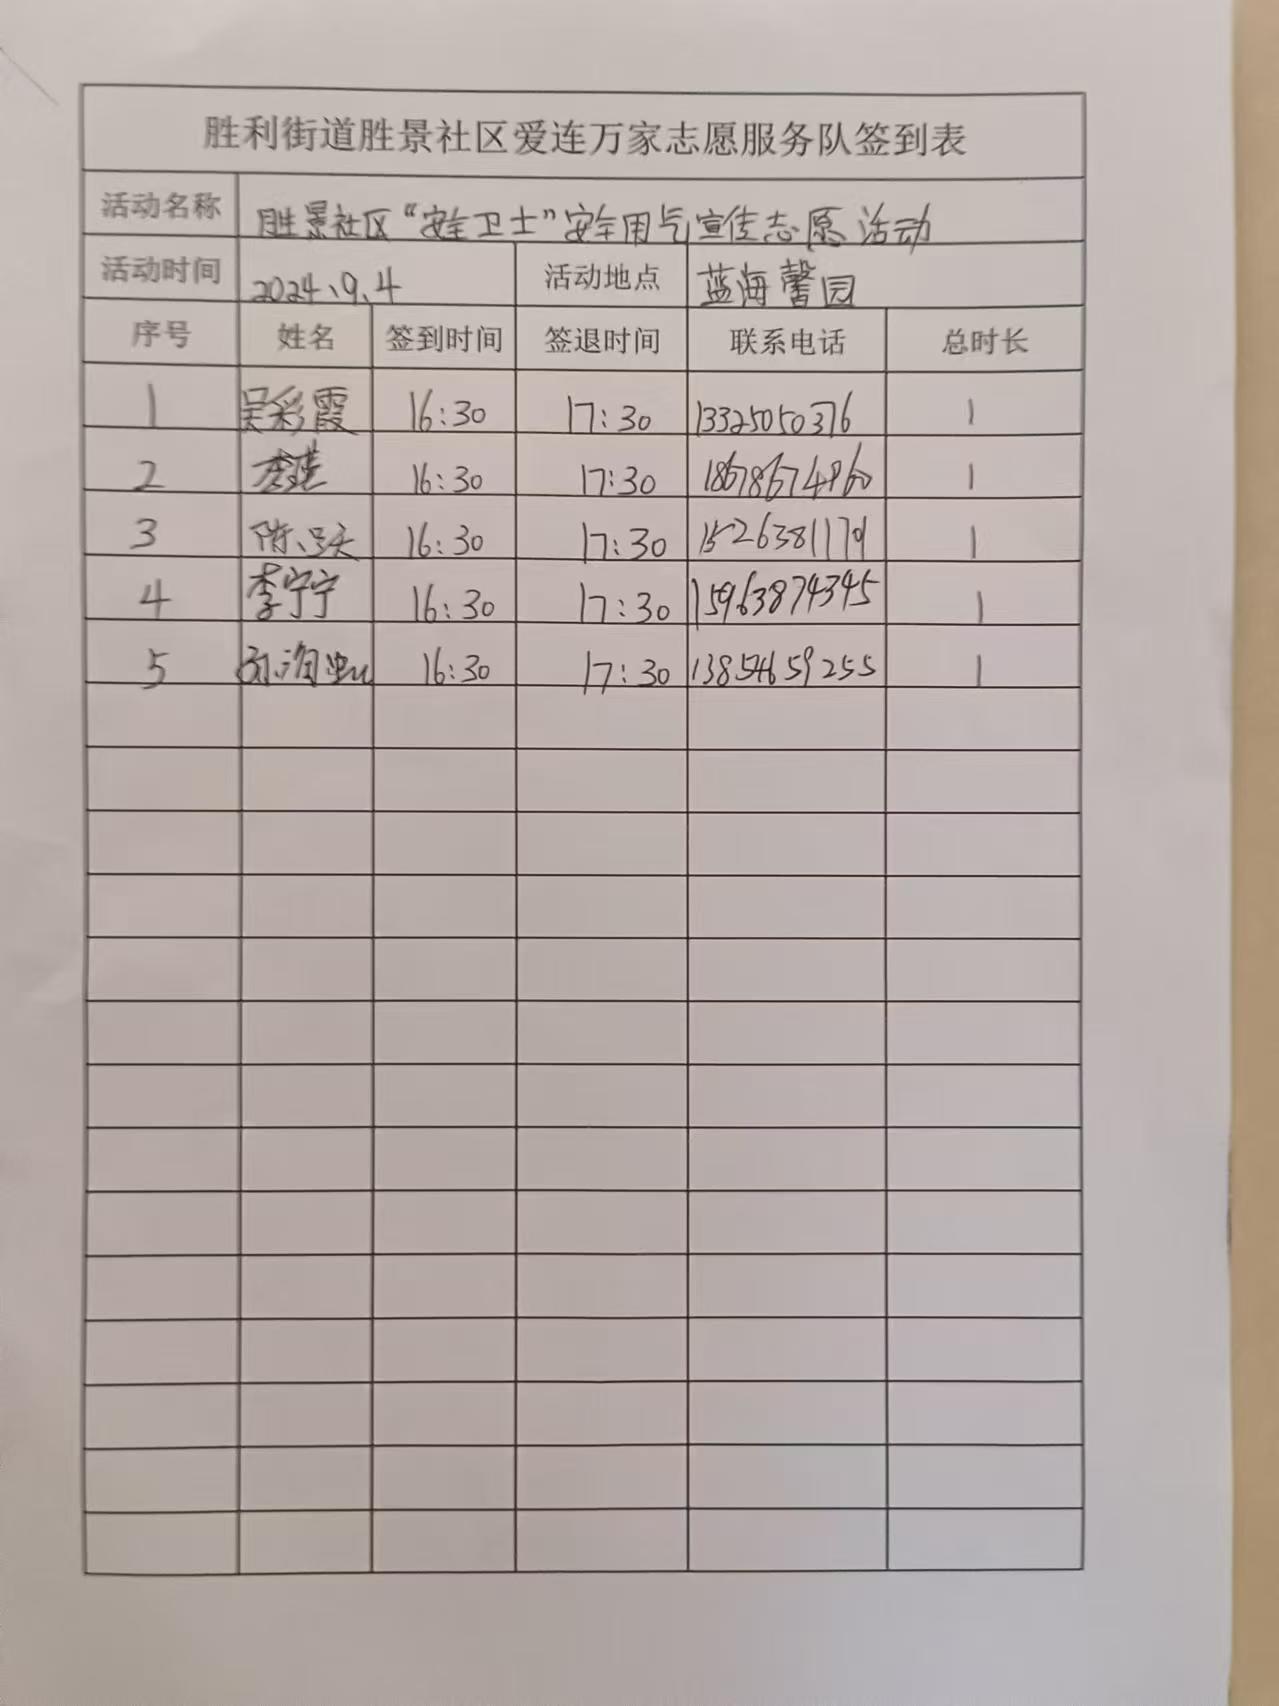 胜利街道胜景社区爱连万家志愿服务队签到表
活动名称 胜景社区“安全卫士”安全用气宣传志愿活动
活动时间 2024.9.4 活动地点 蓝海馨园
序号 姓名 签到时间 签退时间 联系电话 总时长
1 吴彩霞 16:30 17:30 13325050376 1
2 16:30 17:30 18678674860 1
3 16:30 17:30 15263811179 1
4 李宁宁 16:30 17:30 15963874345 1
5 16:30 17:30 13854659255 1